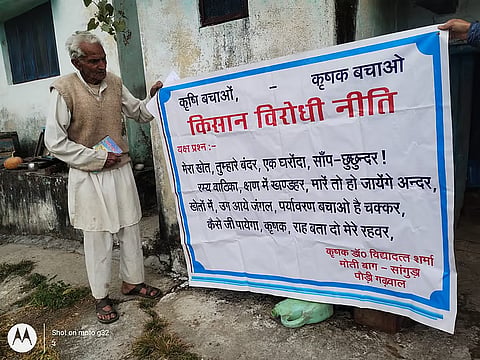 कृषि बचाओं, - कृषक बचाओ
किसान विरोधी नीति
यक्ष प्रश्न :-
मेरा खेत, तुम्हारे बंदर, एक घरोंदा, साँप-छुछुन्दर !
रम्य वाटिका, क्षण में खण्डहर, मारें तो हो जायेंगे अन्दर,
खेतों में, उग आये जंगल, पर्यावरण बचाओ है चक्कर,
कैसे जी पायेगा, कृषक, राह बता दो मेरे रहवर,
कृषक डॉ० विद्यादत्त शर्मा
मोती बाग - सांगुड़ा
पौड़ी गढ़वाल
Shot on moto g32